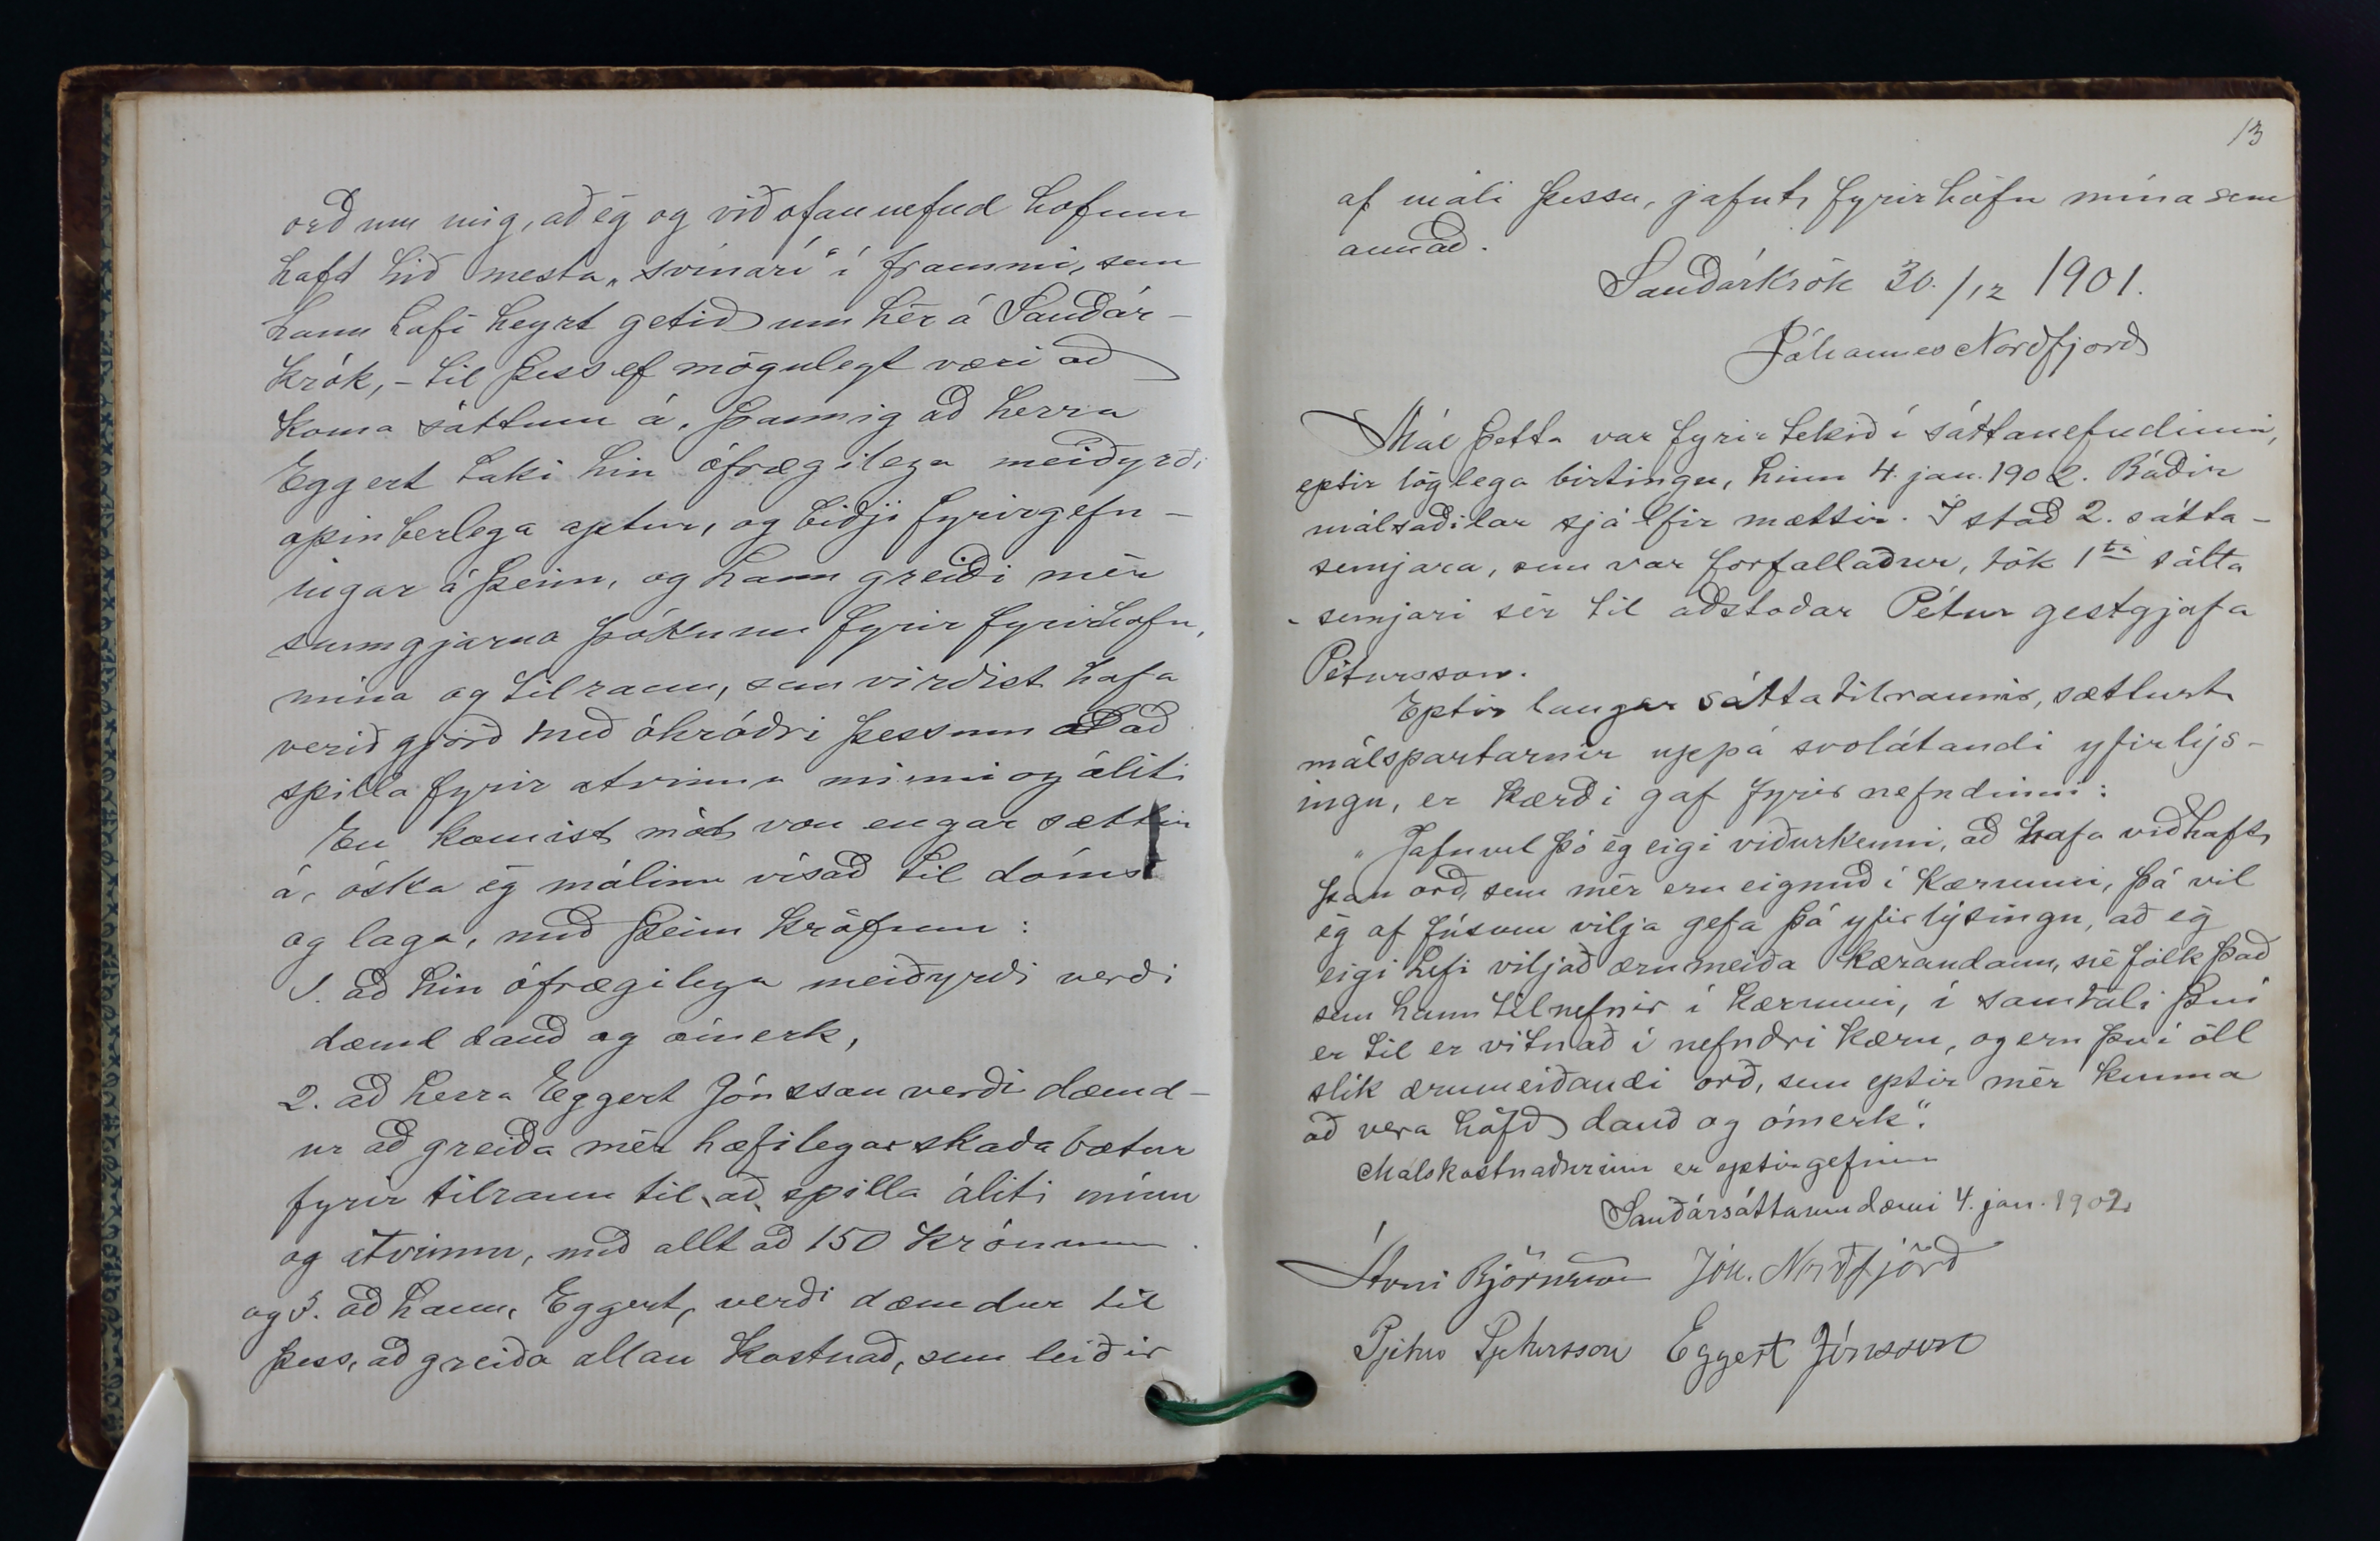 orð um mig, að ég og við ofannefnd höfum
hafd hið mesta „svínarí“ í frammi, sem
hann hafi heyrt getið um hér á Sauðár-
krók, - til þess ef mögulegt væri að
koma sáttum á, þannig að herra
Eggert taki hin ófrægilega meiðyrði
opinberlega aptur, og biðji fyrirgefn-
ingar á þeim, og hann greiði mér
sanngjarna þóknun fyrir fyrirhöfn,
mína og tilraun, sem virðist hafa
verið gjörð með óhróðri þessum að
spilla fyrir atvinnu minni og áliti
En komist mót von engar sættir
á, óska ég málinu vísað til dóms
og laga, með þeim kröfum:
1. að hin ófrægilega meiðyrði verði
dæmd dauð og ómerk,
2. að herra Eggert Jónsson verði dæmd-
ur að greiða mér hæfilegar skaðabætur
fyrir tilraun til að spilla áliti mínu
og atvinnu, með allt að 150 krónum
og 3. að hann, Eggert, verði dæmdur til
þess, að greiða allan kostnað, sem leiðir
13
af máli þessu, jafnt fyrirhöfn mína sem
annað.
Sauðárkrók 30./12 1901.
Jóhannes Norðfjörð
Mál þetta var fyrirtekið í sáttanefndinni,
eptir löglega birtingu, hinn 4. jan. 1902. Báðir
málsaðilar sjálfir mættir. Í stað 2. sátta-
semjara, sem var forfallaður, tók 1ti sátta
- semjari sér til aðstoðar Pétur gestgjafa
Pétursson.
Eptir langar sáttatilraunir, sættust
málspartarnir uppá svolátandi yfirlýs-
ingu, er kærði gaf fyrir nefndinni:
„Jafnvel þó ég eigi viðurkenni, að hafa viðhaft
þau orð, sem mér eru eignuð í kærunni, þá vil
ég af fúsum vilja gefa þá yfirlýsingu, að ég
eigi hefi viljað ærumeiða kærandann, né fólk það
sem hann tilnefnir í kærunni, í samtali því
er til er vitnað í nefndri kæru, og eru því öll
slík ærumeiðandi orð, sem eptir mér kunna
að vera höfð dauð og ómerk“.
Málskostnaðurinn er eptirgefinn
Sauðársáttaumdæmi 4. jan. 1902
Árni Björnsson Jóh. Norðfjörð
Pjetur Pjetursson Eggert Jónsson